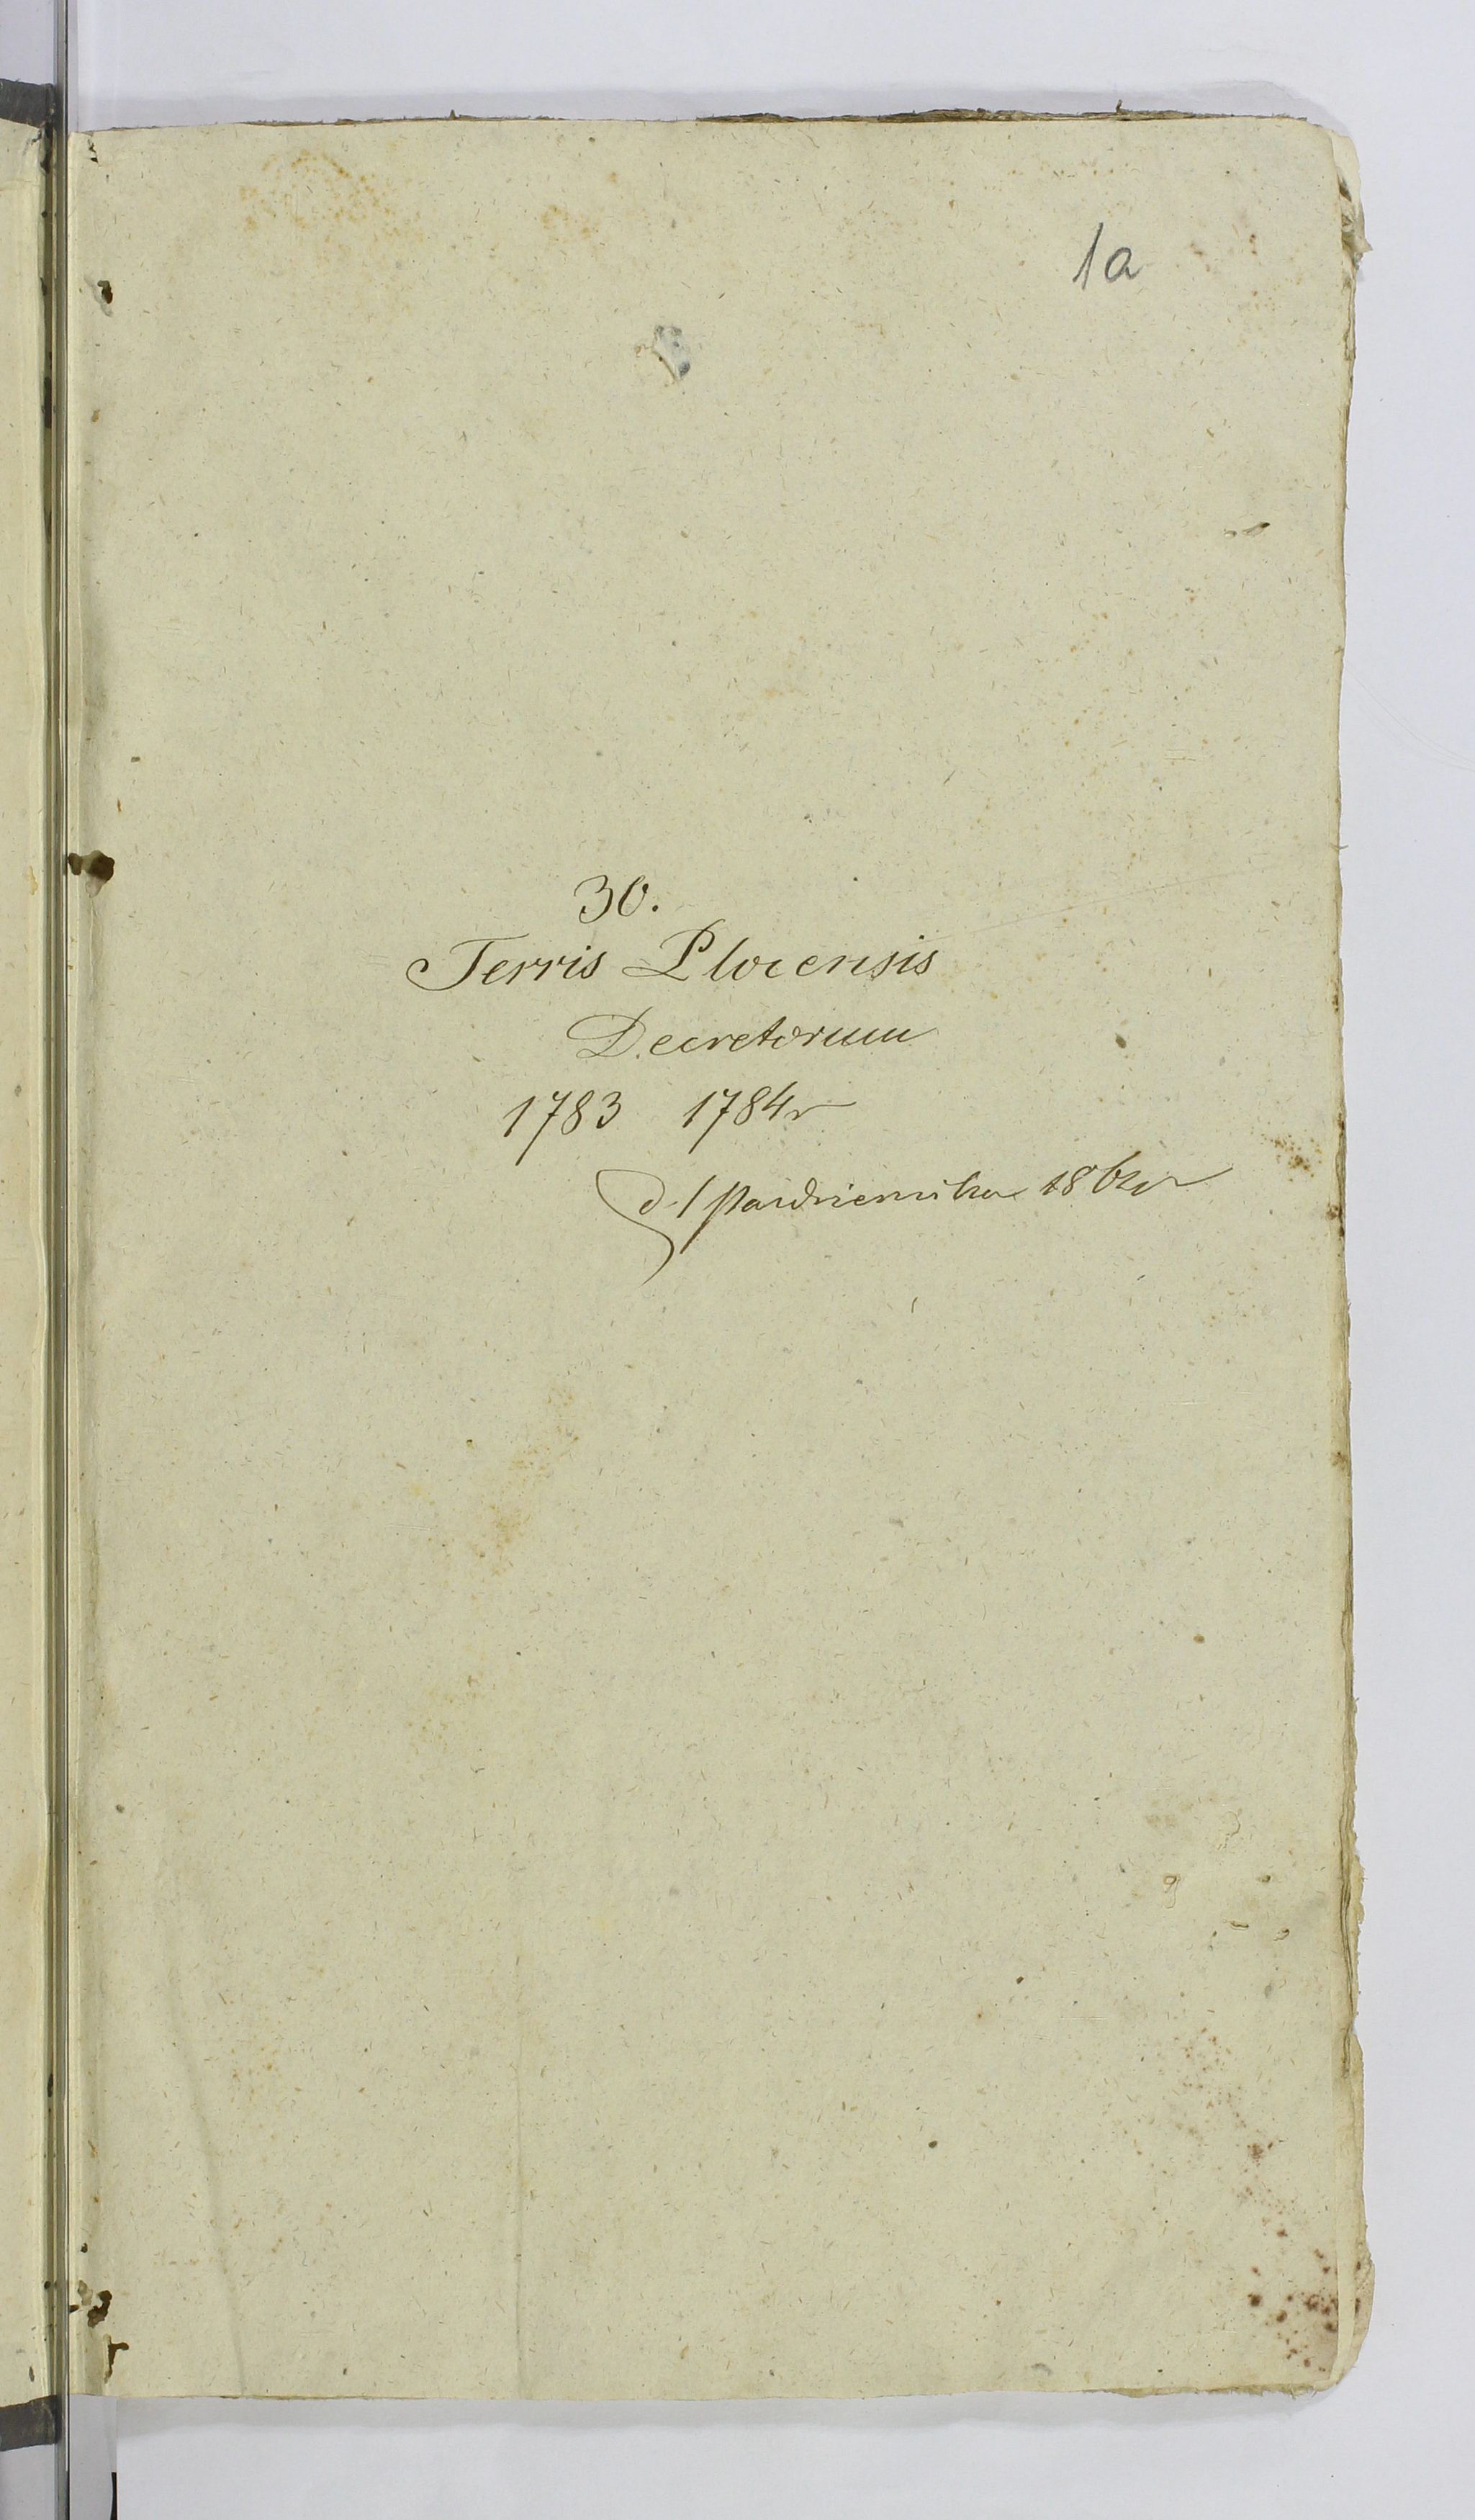 1a
30.
Terris Plocensis
Decretorum
1783 1784r
d. 1 Października 186